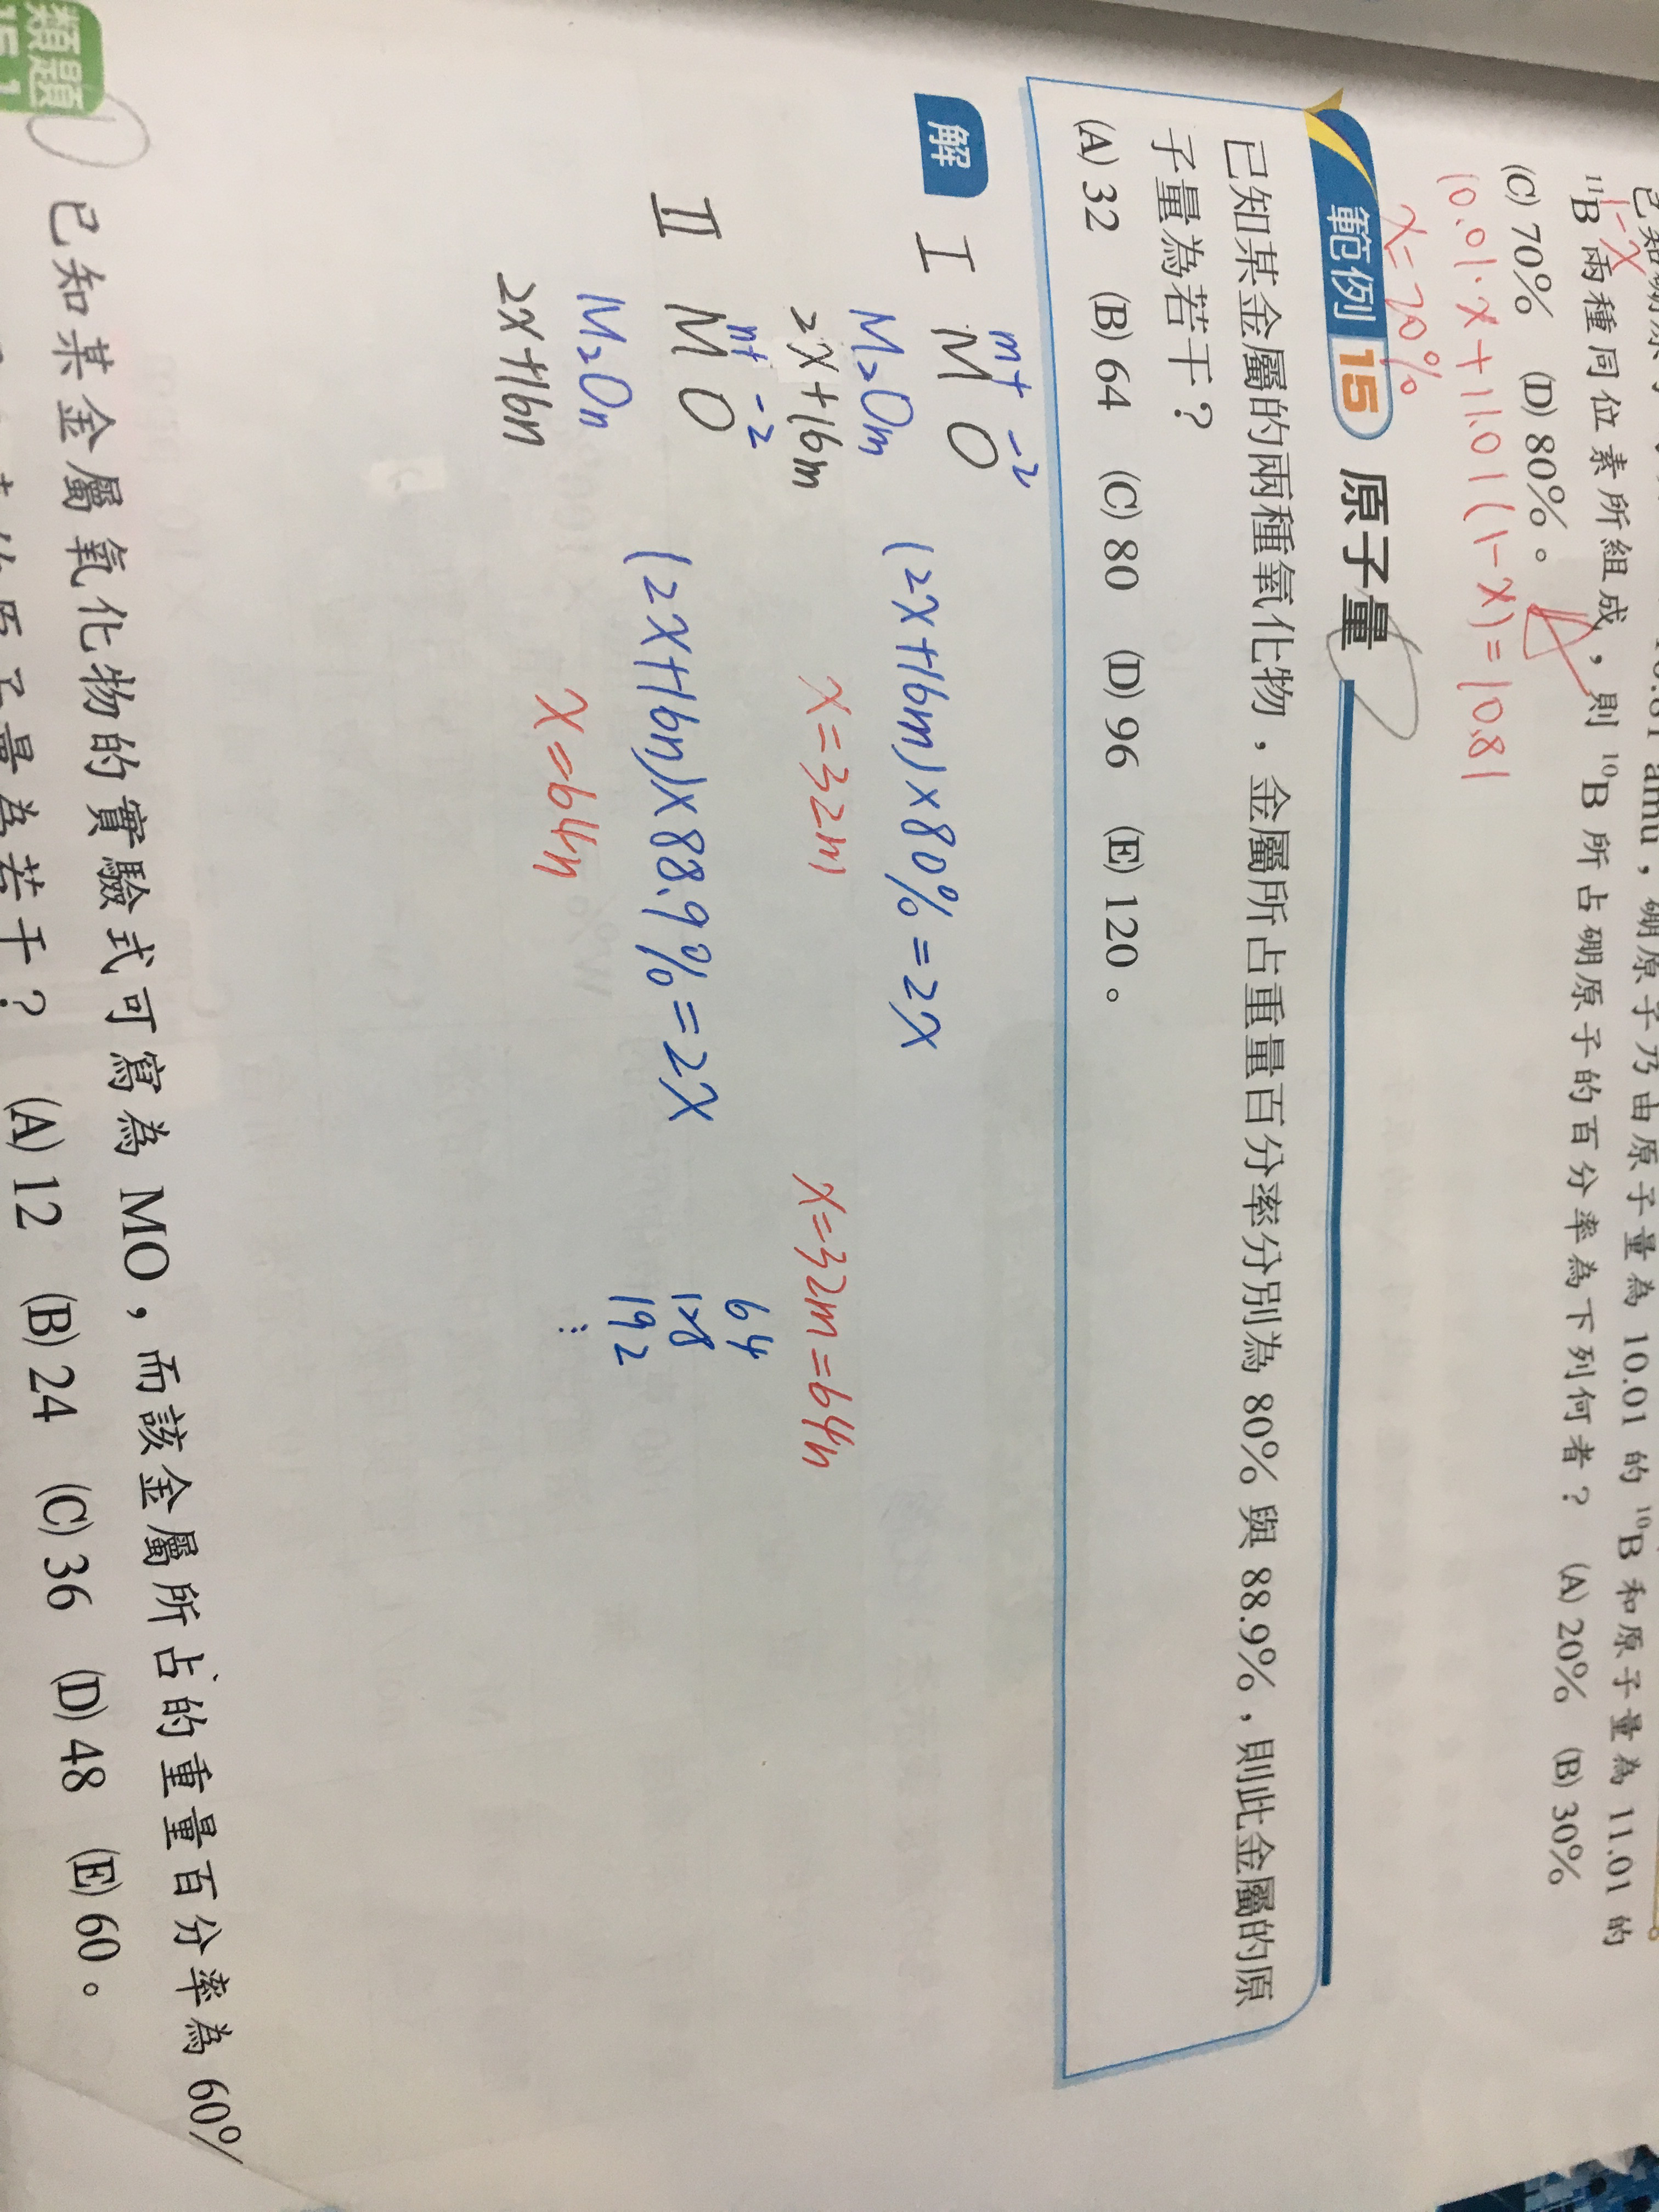 10.81 amu，硼原子乃由原子量為 10.01 的 ¹⁰B 和原子量為 11.01 的
¹¹B 兩種同位素所組成，則 ¹⁰B 所占硼原子的百分率為下列何者？ (A) 20% (B) 30%
1-x
(C) 70% (D) 80%。
10.01·x+11.01(1-x)=10.81
x=20%
範例 15 原子量
已知某金屬的兩種氧化物，金屬所占重量百分率分別為 80% 與 88.9%，則此金屬的原
子量為若干？
(A) 32 (B) 64 (C) 80 (D) 96 (E) 120。
解
I
m+ -2
M O (2x+16m)×80%=2x
M₂Om
2x+16m x=32m x=32m=64n
64
128
192
⋮
II
n+ -2
M O (2x+16n)×88.9%=2x
M₂On
2x+16n x=64n
類題
15.1
已知某金屬氧化物的實驗式可寫為 MO，而該金屬所占的重量百分率為 60%
原子量為若干？ (A) 12 (B) 24 (C) 36 (D) 48 (E) 60。